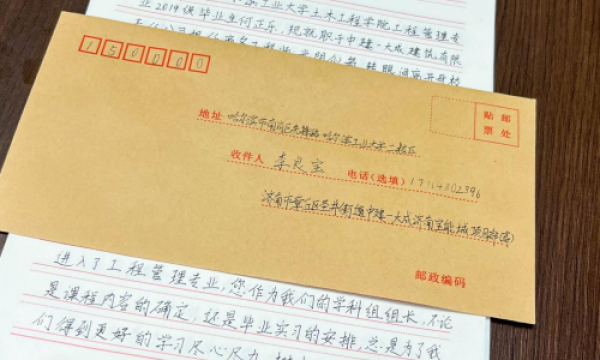 工业大学土木工程学院工程管理专
业2019级毕业生何正乐，现就职于中建一大成建筑有限
转眼间离开母校
150000
贴 邮
票 处
地址 哈尔滨市南岗区 哈尔滨工业大学二校区
收件人 李良宝 电话(选填)
济南市章丘区圣井街道中建一大成济南宝能城项目部(南)
邮政编码
进入了工程管理专业，您作为我们的学科组组长，不论
是课程内容的确定，还是毕业实习的安排，总是为了我
们得到更好的学习尽心尽力